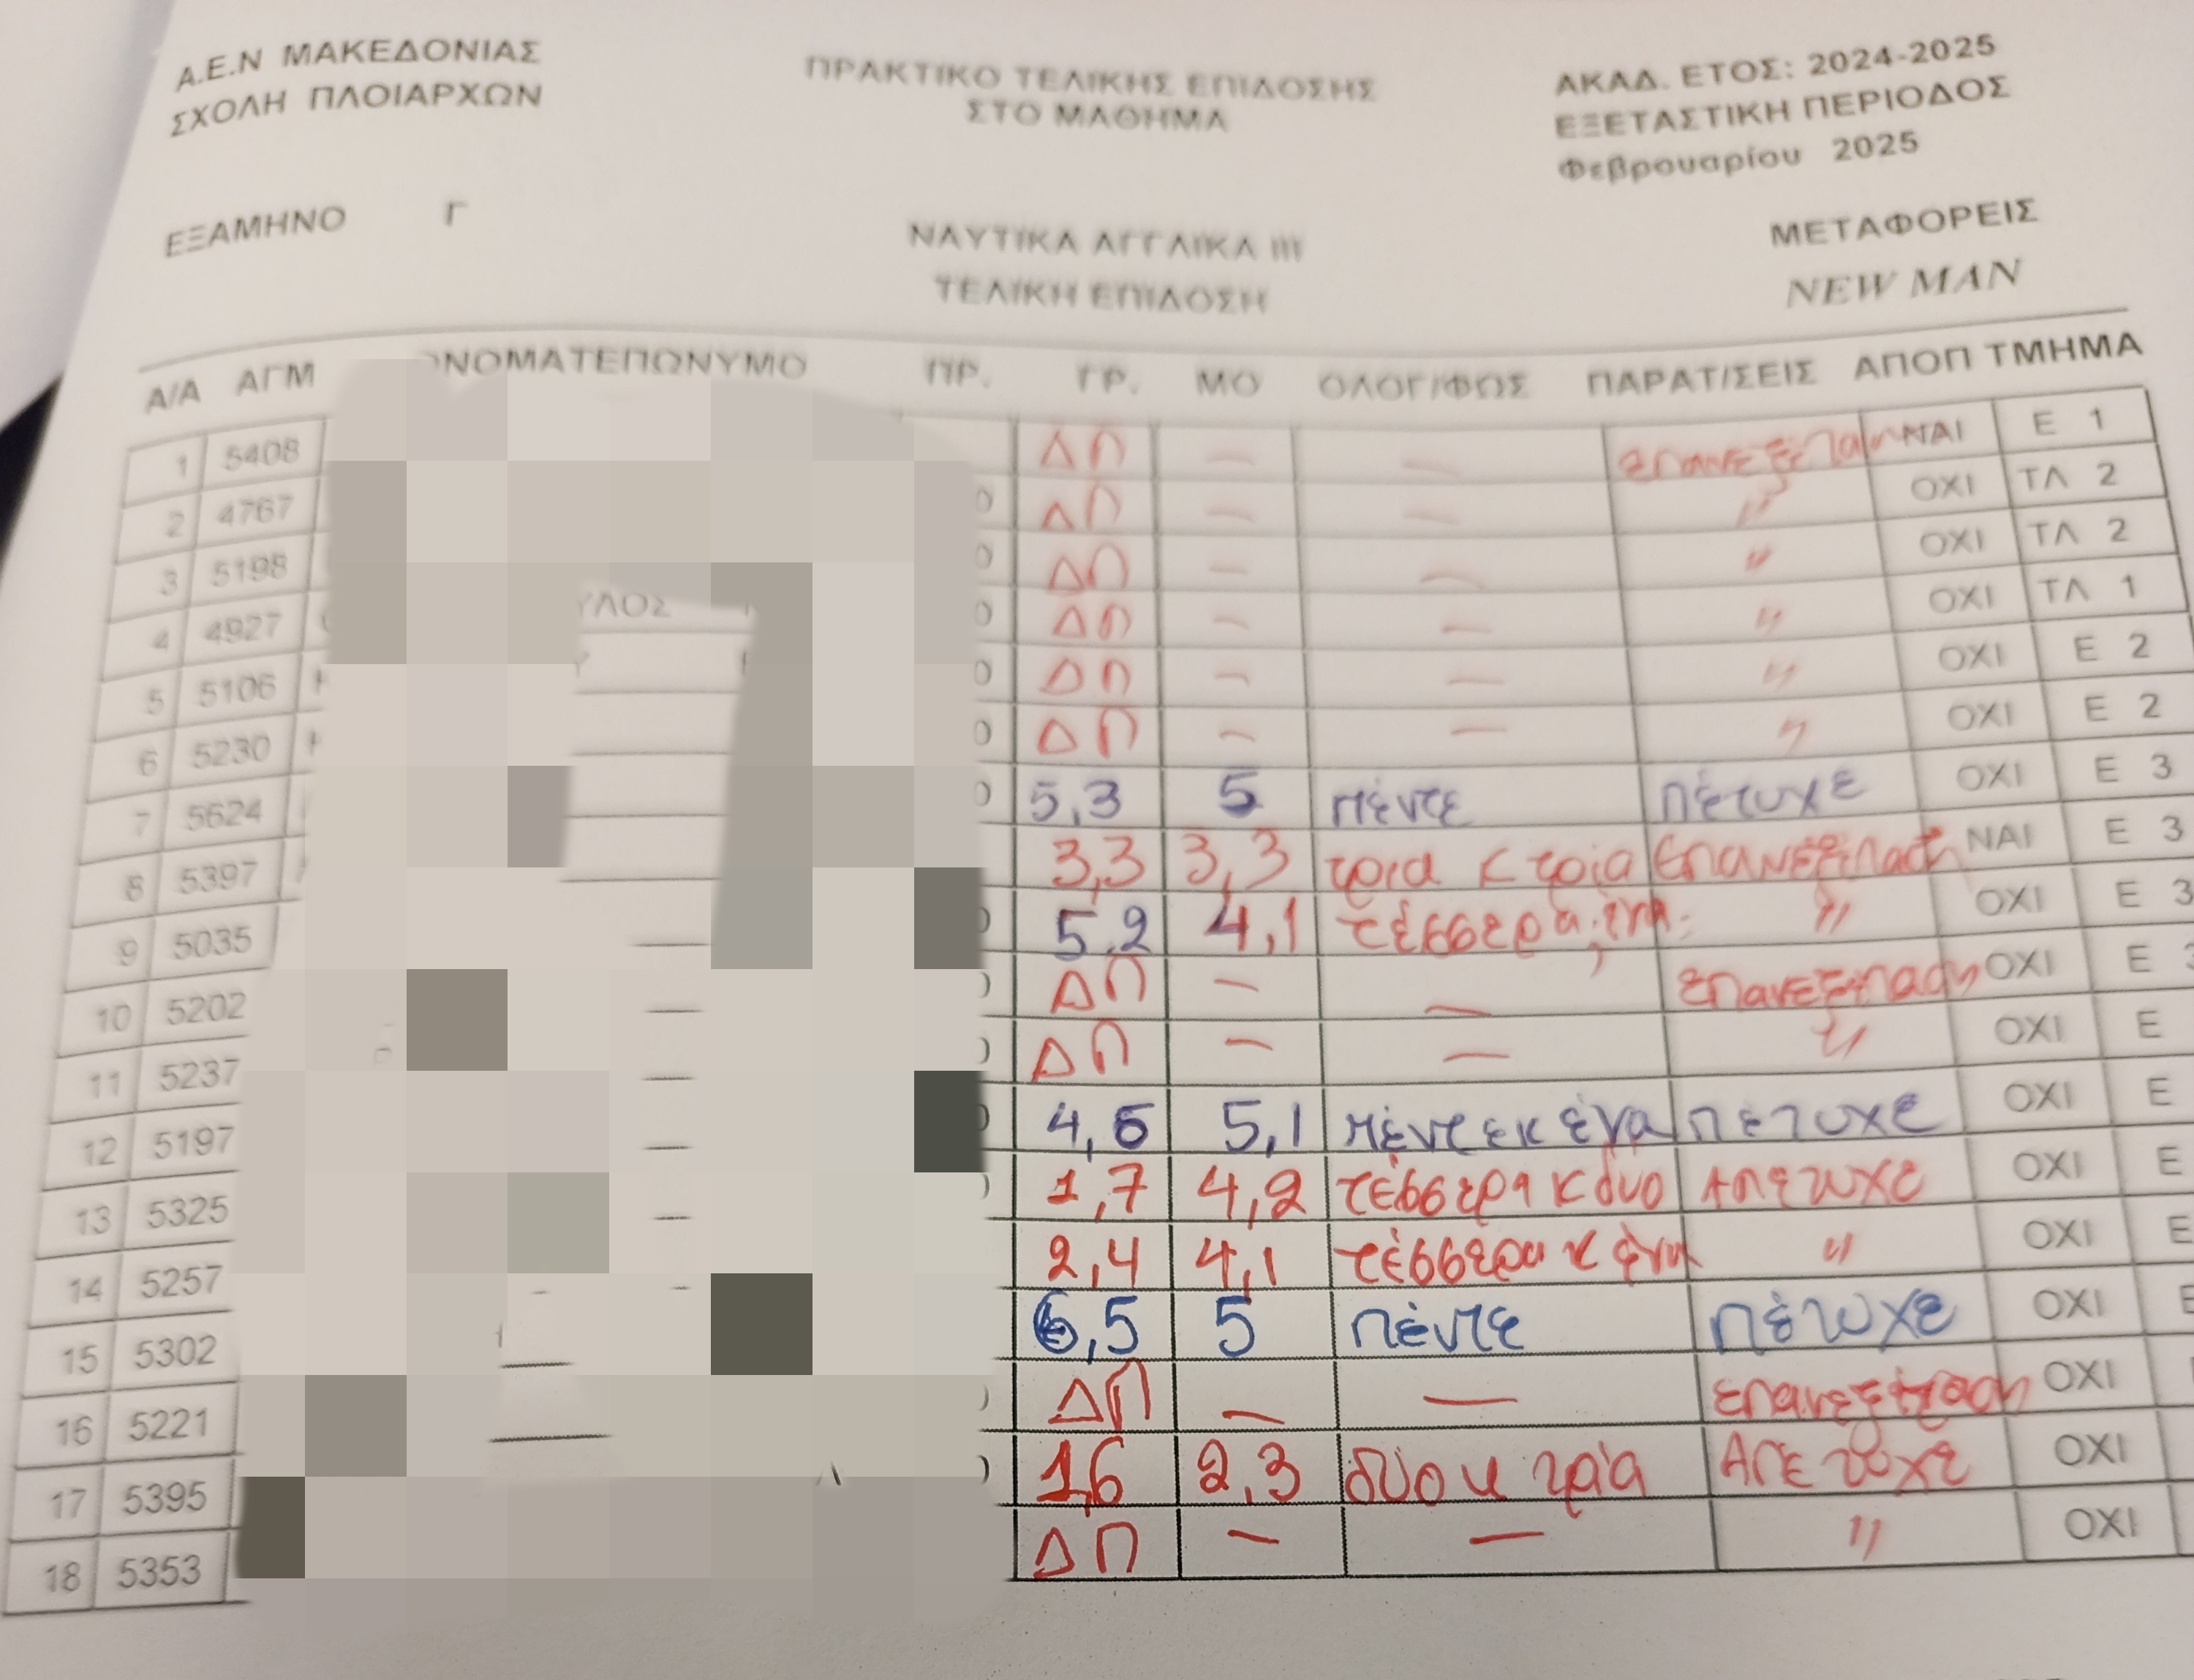 Α.Ε.Ν ΜΑΚΕΔΟΝΙΑΣ
ΣΧΟΛΗ ΠΛΟΙΑΡΧΩΝ
ΠΡΑΚΤΙΚΟ ΤΕΛΙΚΗΣ ΕΠΙΔΟΣΗΣ
ΣΤΟ ΜΑΘΗΜΑ
ΑΚΑΔ. ΕΤΟΣ: 2024-2025
ΕΞΕΤΑΣΤΙΚΗ ΠΕΡΙΟΔΟΣ
Φεβρουαρίου 2025
ΕΞΑΜΗΝΟ Γ
ΝΑΥΤΙΚΑ ΑΓΓΛΙΚΑ ΙΙΙ
ΤΕΛΙΚΗ ΕΠΙΔΟΣΗ
ΜΕΤΑΦΟΡΕΙΣ
NEW MAN
Α/Α ΑΓΜ ΟΝΟΜΑΤΕΠΩΝΥΜΟ ΠΡ. ΓΡ. ΜΟ ΟΛΟΓΙΦΩΣ ΠΑΡΑΤ/ΣΕΙΣ ΑΠΟΠ ΤΜΗΜΑ
1 5408 ΔΠ — — επανεξέταση ΝΑΙ Ε 1
2 4767 ΔΠ — — " ΟΧΙ ΤΛ 2
3 5198 ΔΠ — — " ΟΧΙ ΤΛ 2
4 4927 ΥΛΟΣ ΔΠ — — " ΟΧΙ ΤΛ 1
5 5106 ΔΠ — — " ΟΧΙ Ε 2
6 5230 ΔΠ — — " ΟΧΙ Ε 2
7 5624 5,3 5 πέντε πέτυχε ΟΧΙ Ε 3
8 5397 3,3 3,3 τρια κ τρία επανεξέταση ΝΑΙ Ε 3
9 5035 5,2 4,1 τέσσερα, ένα " ΟΧΙ Ε 3
10 5202 ΔΠ — — επανεξέταση ΟΧΙ Ε 3
11 5237 ΔΠ — — " ΟΧΙ Ε
12 5197 4,6 5,1 πέντε κ ένα πέτυχε ΟΧΙ Ε
13 5325 1,7 4,2 τέσσερα κ δυο Απέτυχε ΟΧΙ Ε
14 5257 2,4 4,1 τέσσερα κ ένα " ΟΧΙ Ε
15 5302 6,5 5 πέντε πέτυχε ΟΧΙ Ε
16 5221 ΔΠ — — επανεξέταση ΟΧΙ
17 5395 1,6 2,3 δύο κ τρία Απέτυχε ΟΧΙ
18 5353 ΔΠ — — " ΟΧΙ